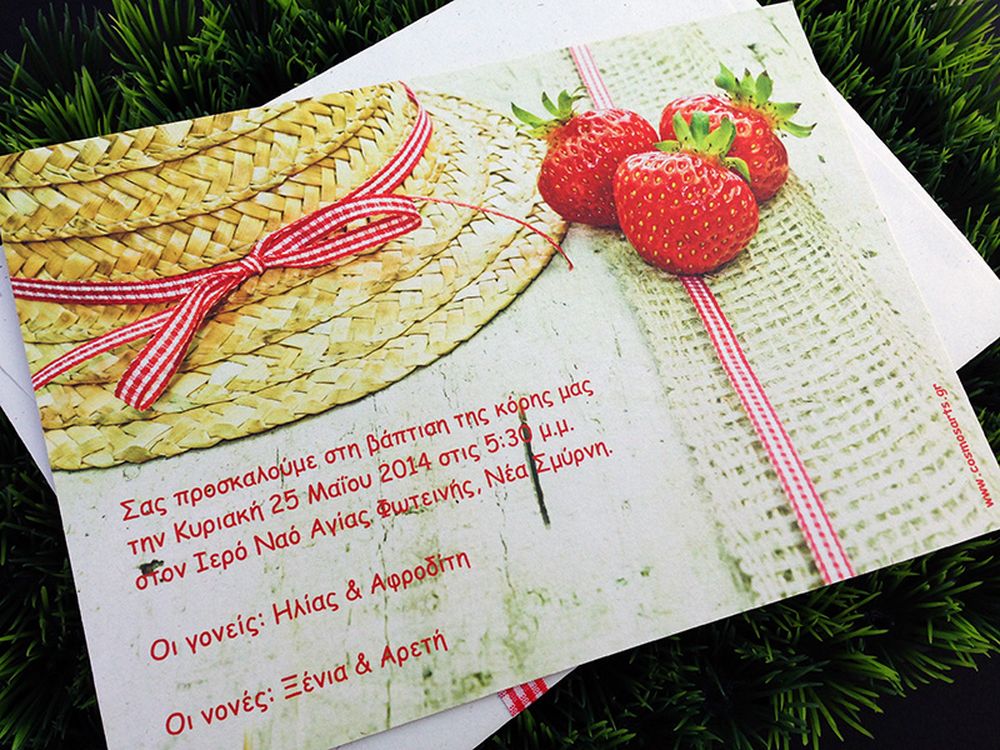 Σας προσκαλούμε στη βάπτιση της κόρης μας
την Κυριακή 25 Μαΐου 2014 στις 5:30 μ.μ.
στον Ιερό Ναό Αγίας Φωτεινής, Νέα Σμύρνη.
Οι γονείς: Ηλίας & Αφροδίτη
Οι νονές: Ξένια & Αρετή
www.cosmosarts.gr